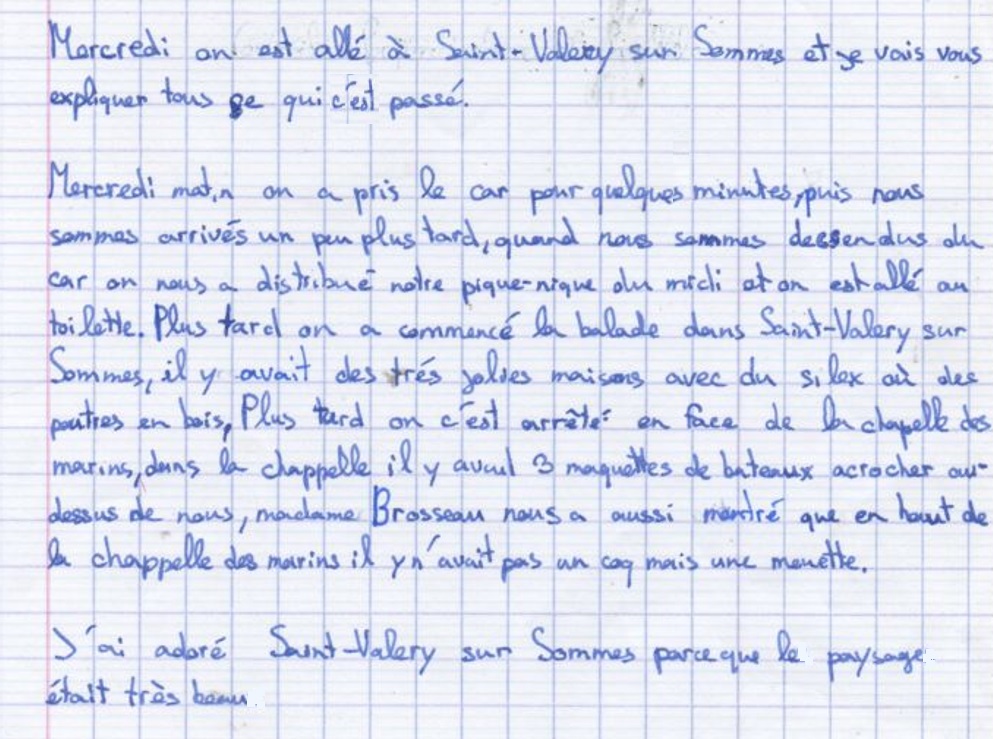 Mercredi on est allé à Saint-Valery sur Sommes et je vais vous
expliquer tous ce qui c'est passé.
Mercredi matin on a pris le car pour quelques minutes, puis nous
sommes arrivés un peu plus tard, quand nous sommes dessendus du
car on nous a distribué notre pique-nique du midi et on est allé au
toilette. Plus tard on a commencé la balade dans Saint-Valery sur
Sommes, il y avait des trés jolies maisons avec du silex où des
poutres en bois, Plus tard on c'est arrêté en face de la chapelle des
marins, dans la chappelle il y avait 3 maquettes de bateaux acrocher au-
dessus de nous, madame Brosseau nous a aussi montré que en haut de
la chappelle des marins il y n'avait pas un coq mais une mouette.
J'ai adoré Saint-Valery sur Sommes parce que le paysage
était très beau.